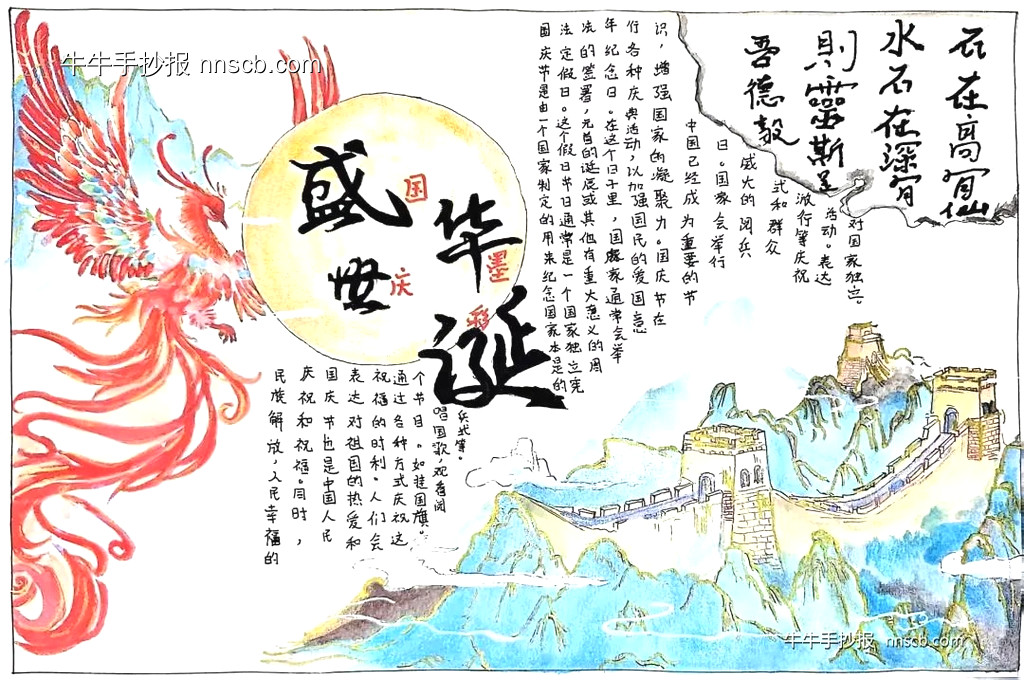 牛牛手抄报 nnscb.com
盛世
华诞
国庆
墨彩
石在高仙
水石在深
則靈斯是
吾德毅
国庆节是由一个国家制定的用来纪念国家本是的
法定假日。这个假日节日通常是一个国家独立宪
法的签署、元首的诞辰或其他有重大意义的周
年纪念日。在这个日子里，国家通常会举
行各种庆典活动，以加强国民的爱国意
识，增强国家的凝聚力。国庆节在
中国已经成为重要的节
日。国家会举行
盛大的阅兵
式和群众
游行等庆祝
活动。表达
对国家独立。
民族解放，人民幸福的
庆祝和祝福。同时，
国庆节也是中国人民
表达对祖国的热爱和
祝福的时利。人们会
通过各种方式庆祝这
个节目。如挂国旗
唱国歌，观看阅
兵式等。
牛牛手抄报 nnscb.com